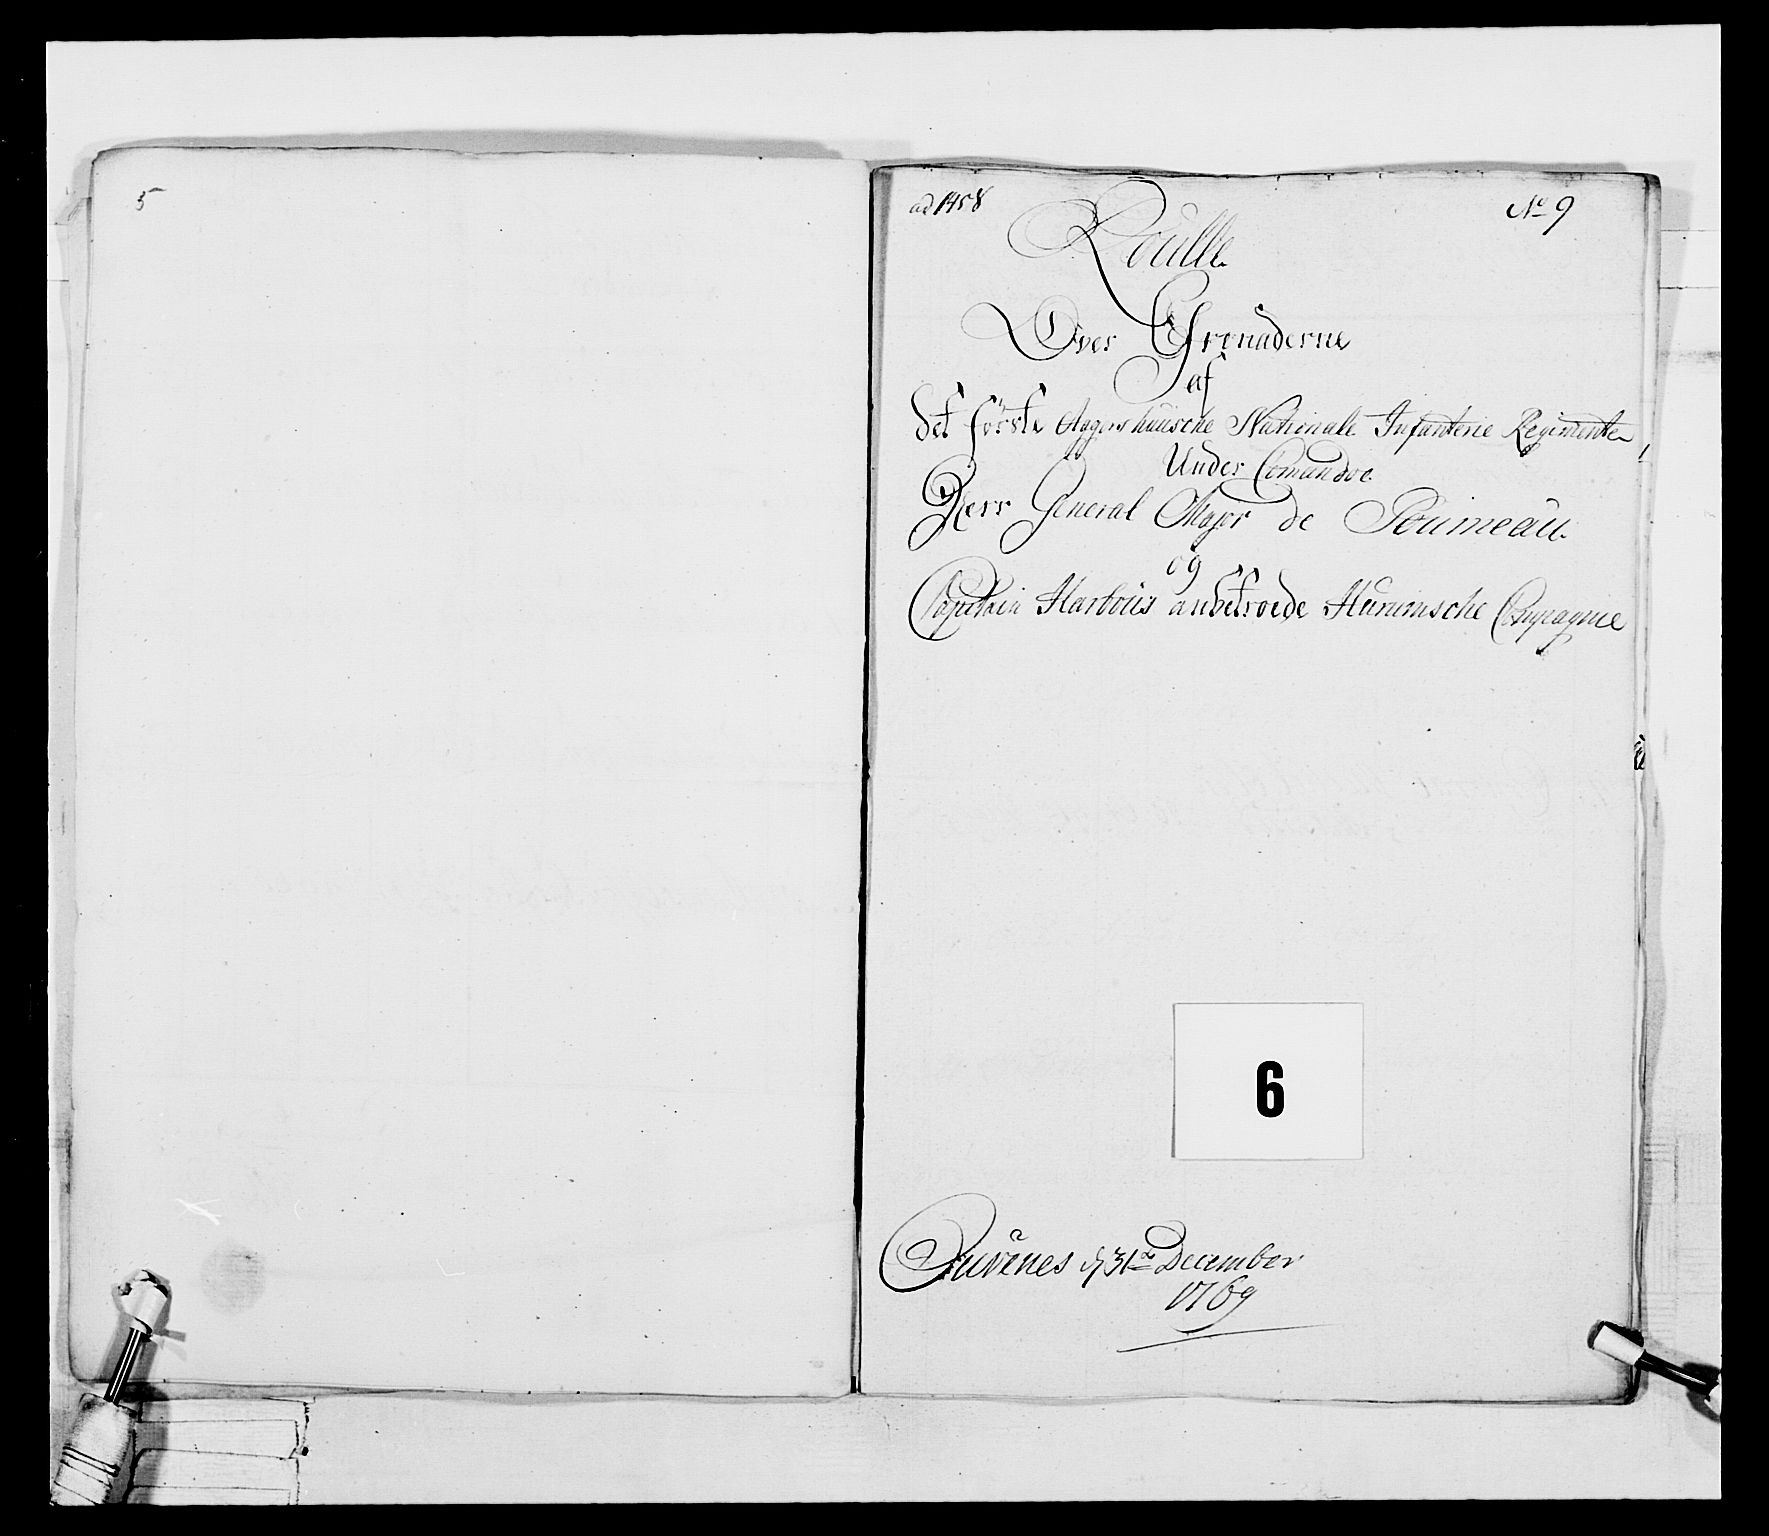 5
ad 1458
No 9
Roulle
Over Grenaderne
af
det første Aggershuusche Nationale Infanterie Regimente
Under Comando
Herr General Major de Poumeau
og
Capitain Harboüs anbetroede Hurumsche Compagnie
6
31te December
1769